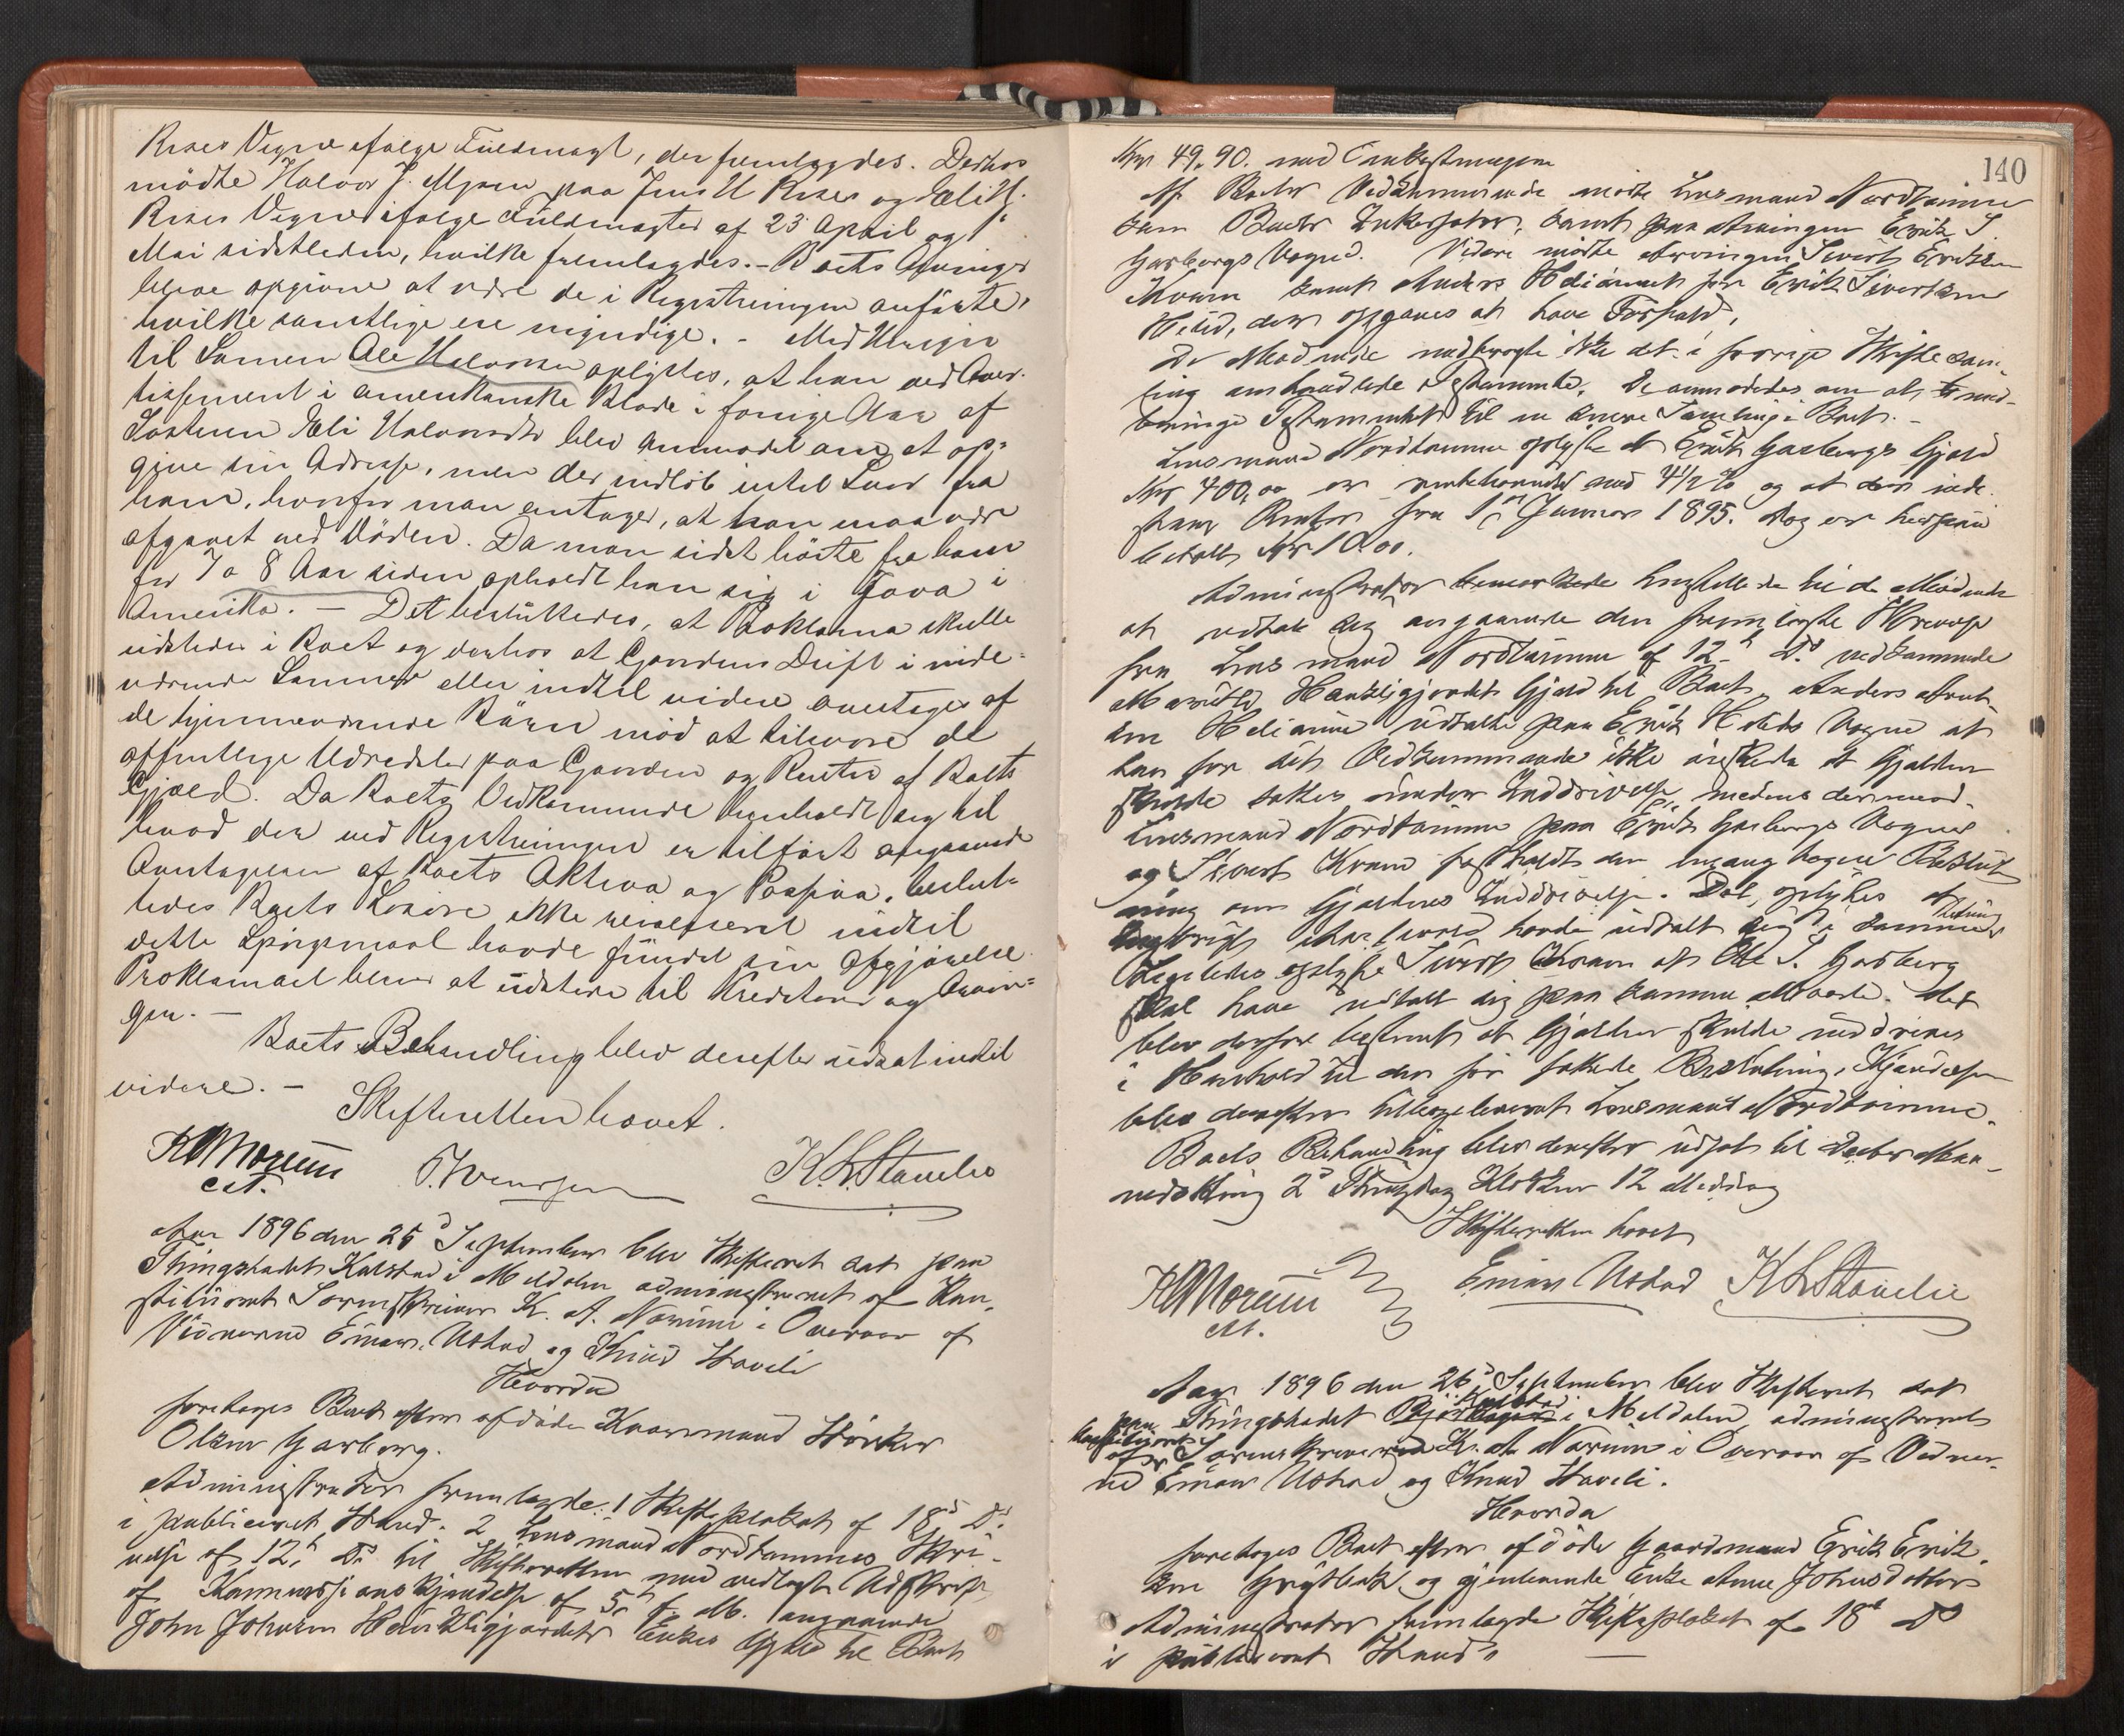 Rises Vegne ifølge Fuldmagt, der fremlagdes. Derhos
mödte Halvor J. Mjøen paa Jens H Rises og Eli H.
Rises Vegne ifølge Fuldmagter af 23 April og 1
Mai sidstleden, hvilke fremlagdes. - Boets Arvinger
bleve opgivne at være de i Registreringen anförte,
hvilke samtlige ere myndige. - Med Hensyn
til Sönnen Ole Halvorsen oplystes, at han ved Aver-
tissement i amerikanske Blade i forrige Aar af
Søsteren Eli Halvorsdtr blev anmodet om at op-
give sin Adresse, men der indlöb intet Svar fra
ham, hvorfor man antager, at han maa være
afgaaet ved Döden. Da man sidst hörte fra ham
for 7 a 8 Aar siden opholdt han sig i Jova i
Amerika. - Det besluttedes, at Proklama skulde
udstedes i Boet og derhos at Gaardens Drift i inde-
værende Sommer eller indtil videre overtages af
de hjemmeværende Börn mod at tilsvare de
offentlige Udredsler paa Gaarden og Renter af Boets
Gjæld. Da Boets Vedkommende henholdt sig til
hvad der ved Registreringen er tilfört angaaende
Overtagelsen af Boets Aktiva og Passiva, beslut-
tedes Boets Lösöre ikke realiseret indtil
dette Spörgsmaal havde fundet sin Afgjörelse.
Proklamaet bliver at udstede til Kreditorer og Arvin-
ger. -
Boets Behandling blev derefter udsat indtil
videre. -
Skifteretten hævet.
K A Norum
cst.
K. L. Stavelie
Aar 1896 den 25d September blev Skifteret sat paa
Thingstedet Kalstad i Meldalen administreret af Kon-
stitueret Sorenskriver K. A. Norum i Overvær af
Vidnerne Einar Ustad og Knud Staveli
Hvorda
foretoges Boet efter afdöde Kaarmand Störker
Olsen Garberg.
Administrator fremlagde: 1 Skifteplakat af 18d Ds
i publiceret Stand. 2 Lensmand Nordtømmes Skri-
velse af 12te Ds til Skifteretten med vedlagt Udskrift
af Kommissionskjendelse af 5te f. M. angaaende
John Johnsen Haukligjerdets Enkes Gjæld til Boet
140
Kr. 49.90. med Omkostningerne
Af Boets Vedkommende mödte Lensmand Nordtømme
som Boets Inkassator, samt paa Arvingen Erik S.
Garbergs Vegne. Videre mödte Arvingen Sivert Eriksen
Kvam samt Anders Heliømme for Erik Sivertsen
Hilid, der opgaves at have Forfald.
De Mødende medbragte ikke det i forrige Skiftesam-
ling omhandlede Testamente. De anmodedes om at med-
bringe Testamentet til en senere Samling i Boet. -
Lensmand Nordtømme oplyste at Erik Garbergs Gjæld
Kr 700,00 er rentebærende med 4 1/2 % og at der inde-
staar Renter fra 1ste Januar 1895. Dog er herpaa
betalt Kr 10.00.
Administrator henstillede til de Mödende
at udtale sig angaaende den fremlagte Skrivelse
fra Lensmand Nordtømme af 12te Ds vedkommende
Marit Haukligjerdets Gjæld til Boet. Anders Arnt-
sen Heliømme udtalte paa Erik Hilids Vegne at
han for sit Vedkommende ikke önskede at Gjælden
skulde sættes under Inddrivelse, medens derimod
Lensmand Nordtømme paa Erik Garbergs Vegne
og Sivert Kvam fastholdt den engang tagne Beslut-
ning om Gjældens Inddrivelse. Det oplystes at
havde udtalt sig i samme Retning
Ligeledes oplyste Sivert Kvam at Ole S. Garberg
skal have udtalt sig paa samme Maade. Det
blev derfor bestemt at Gjælden skulde inddrives
i Henhold til den för fattede Beslutning. Kjendelsen
blev derefter tilbageleveret Lensmand Nordtømme.
Boets Behandling blev derefter udsat til Decbr Maa-
nedsthing 2d Thingdag Klokken 12 Middag
Skifteretten hævet
K A Norum
cst.
Einar Ustad K L Stavelie
Aar 1896 den 26d September blev Skifteret sat
paa Thingstedet Kalstad i Meldalen administreret
af konstitueret Sorenskriver K. A. Norum i Overvær af Vidner-
ne Einar Ustad og Knud Staveli.
Hvorda
foretoges Boet efter afdöde Gaardmand Erik Erik-
sen Grytbak og gjenlevende Enke Ane Johnsdatter
Administrator fremlagde Skifteplakat af 18de Ds
i publiceret Stand